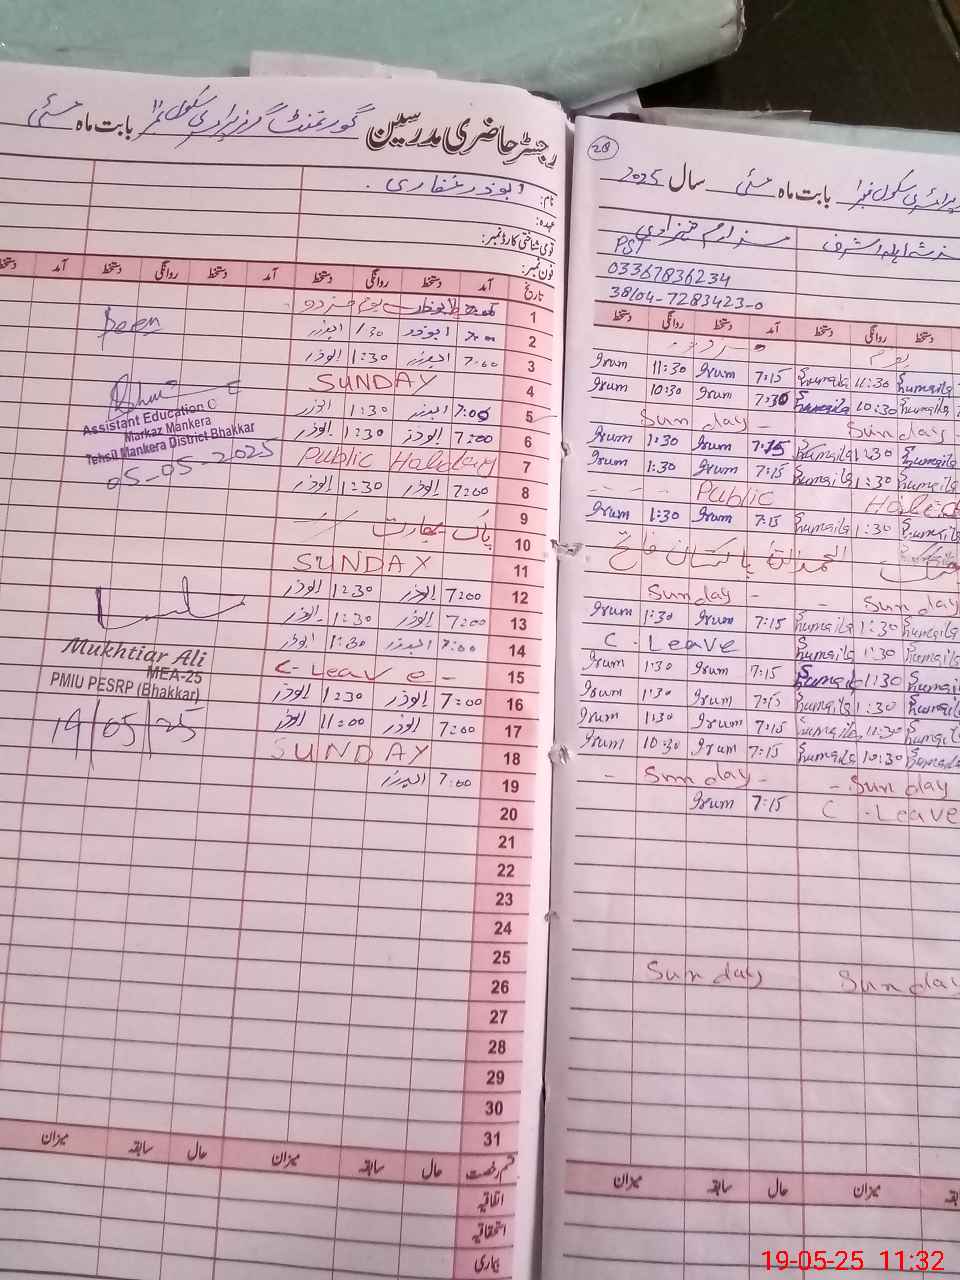 رجسٹر حاضری مدرسین گورنمنٹ گرلز پرائمری سکول نمبر بابت ماہ مئی
نام: ابوذر غفاری .
عہدہ:
قومی شناختی کارڈ نمبر:
فون نمبر:
تاریخ آمد دستخط روانگی دستخط آمد دستخط روانگی دستخط آمد دستخط
1 یوم مزدور
2 ابوذر 1:30 ابوذر
3 7:00 ابوذر 1:30 ابوذر
4 SUNDAY
5 7:00 ابوذر 1:30 ابوذر
6 7:00 ابوذر 1:30 ابوذر
7 Public Holiday
8 7:00 ابوذر 1:30 ابوذر
9
10 پاک بھارت
11 SUNDAY
12 7:00 ابوذر 1:30 ابوذر
13 7:00 ابوذر 1:30 ابوذر
14 7:00 ابوذر 1:30 ابوذر
15 C-Leave-
16 7:00 ابوذر 1:30 ابوذر
17 7:00 ابوذر 11:00 ابوذر
18 SUNDAY
19 7:00 ابوذر
20
21
22
23
24
25
26
27
28
29
30
31
قسم رخصت حال سابقہ میزان حال سابقہ میزان
اتفاقیہ
استحقاقیہ
بیماری
Assistant Education
Markaz Mankera
Tehsil Mankera District Bhakkar
05-05-2025
Mukhtiar Ali
MEA-25
PMIU PESRP (Bhakkar)
19/05/25
28
پرائمری سکول نمبر بابت ماہ مئی سال 2025
مسز ارم شہزادی
PST
03367836234
38104-7283423-0
دستخط روانگی دستخط آمد دستخط روانگی دستخط
Irum 11:30 Irum 7:15 Shumaila 11:30 Shumaila
Irum 10:30 Irum 7:30 Shumaila 10:30 Shumaila
Sunday - Sunday -
Irum 1:30 Irum 7:15 Shumaila 1:30 Shumaila
Irum 1:30 Irum 7:15 Shumaila 1:30 Shumaila
Public
Irum 1:30 Irum 7:15 Shumaila 1:30 Shumaila
الحمداللہ پاکستان فاتح
Sunday - - Sunday
Irum 1:30 Irum 7:15 Shumaila 1:30 Shumaila
C-Leave Shumaila 1:30 Shumaila
Irum 1:30 Irum 7:15 Shumaila 1:30 Shumaila
Irum 1:30 Irum 7:15 Shumaila 1:30 Shumaila
Irum 1:30 Irum 7:15 Shumaila 11:30 Shumaila
Irum 10:30 Irum 7:15 Shumaila 10:30 Shumaila
- Sunday - - Sunday
Irum 7:15 C-Leave
Sunday Sunday
میزان سابقہ حال میزان
19-05-25 11:32